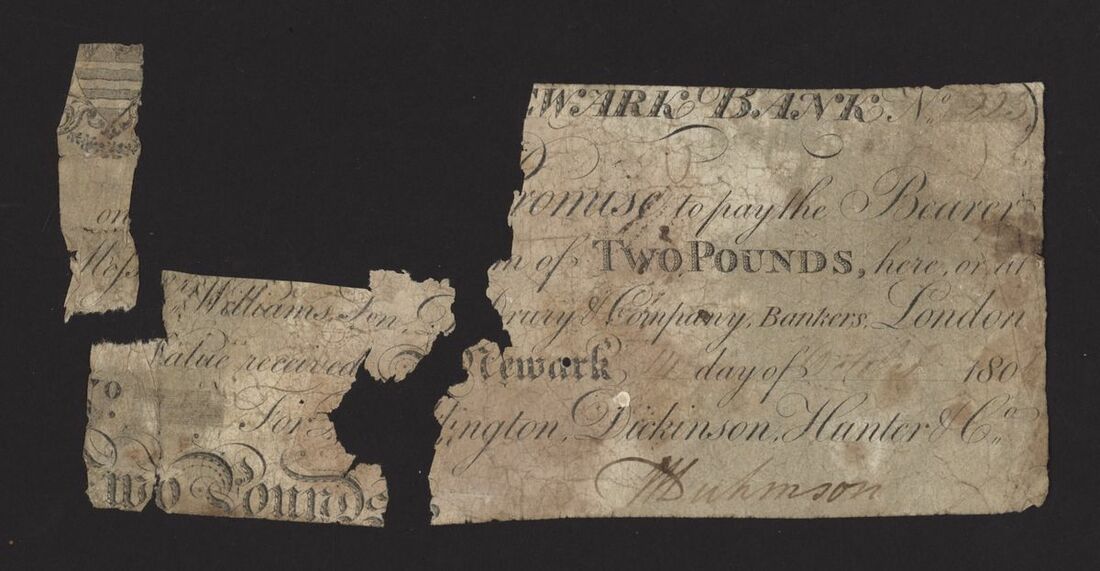 EWARK BANK No 223
romise to pay the Bearer
on
n of TWO POUNDS, here, or at
Mess
Williams, Son, rury & Company, Bankers, London
Value received Newark day of 180
No.
For ington, Dickinson, Hunter & Co.
Two Pounds